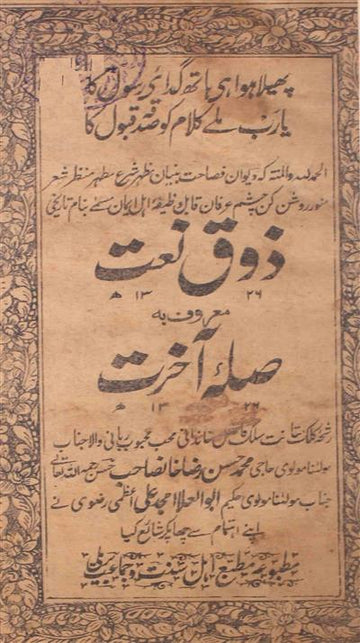 پھیلا ہوا ہی ہاتھ گدائے رسول کا
یارب ملے کلام کو صدقہ قبول کا
الحمد للہ والمنۃ کہ دیوان فصاحت بنیان مظہر شرع مطہر منظر شعر
منور روشن کن چشم عرفان قابل وظیفۂ اہل ایمان مسمّے بنام تاریخی
ذوق نعت
۱۳ ۲۶ ھ
معروف بہ
صلۂ آخرت
۱۳ ۲۶ ھ
رشحۂ کلک محب محبوب ربانی والا جناب
مولٰنا مولوی حاجی محمد حسن رضا خانصاحب حسن رحمۃ اللہ تعالٰے
جناب مولٰنا مولوی حکیم ابو العلا امجد علی اعظمی رضوی نے
اپنے اہتمام سے چھاپکر شائع کیا
مطبوعہ مطبع اہل سنت و جماعت بریلی